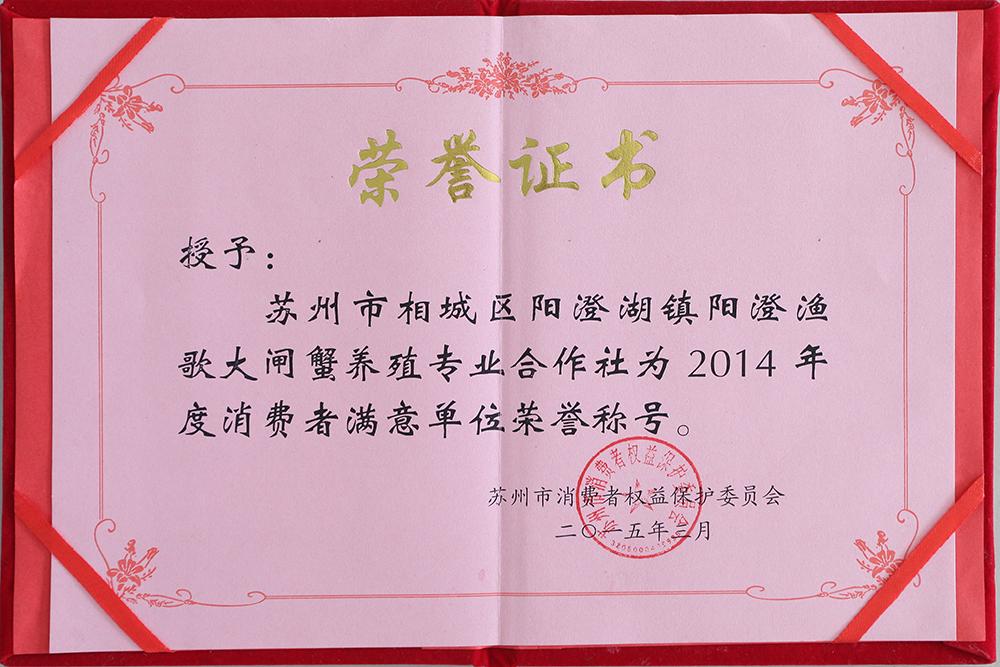 荣誉证书
授予：
苏州市相城区阳澄湖镇阳澄渔
歌大闸蟹养殖专业合作社为 2014 年
度消费者满意单位荣誉称号。
苏州市消费者权益保护委员会
二〇一五年三月
苏州市消费者权益保护委员会